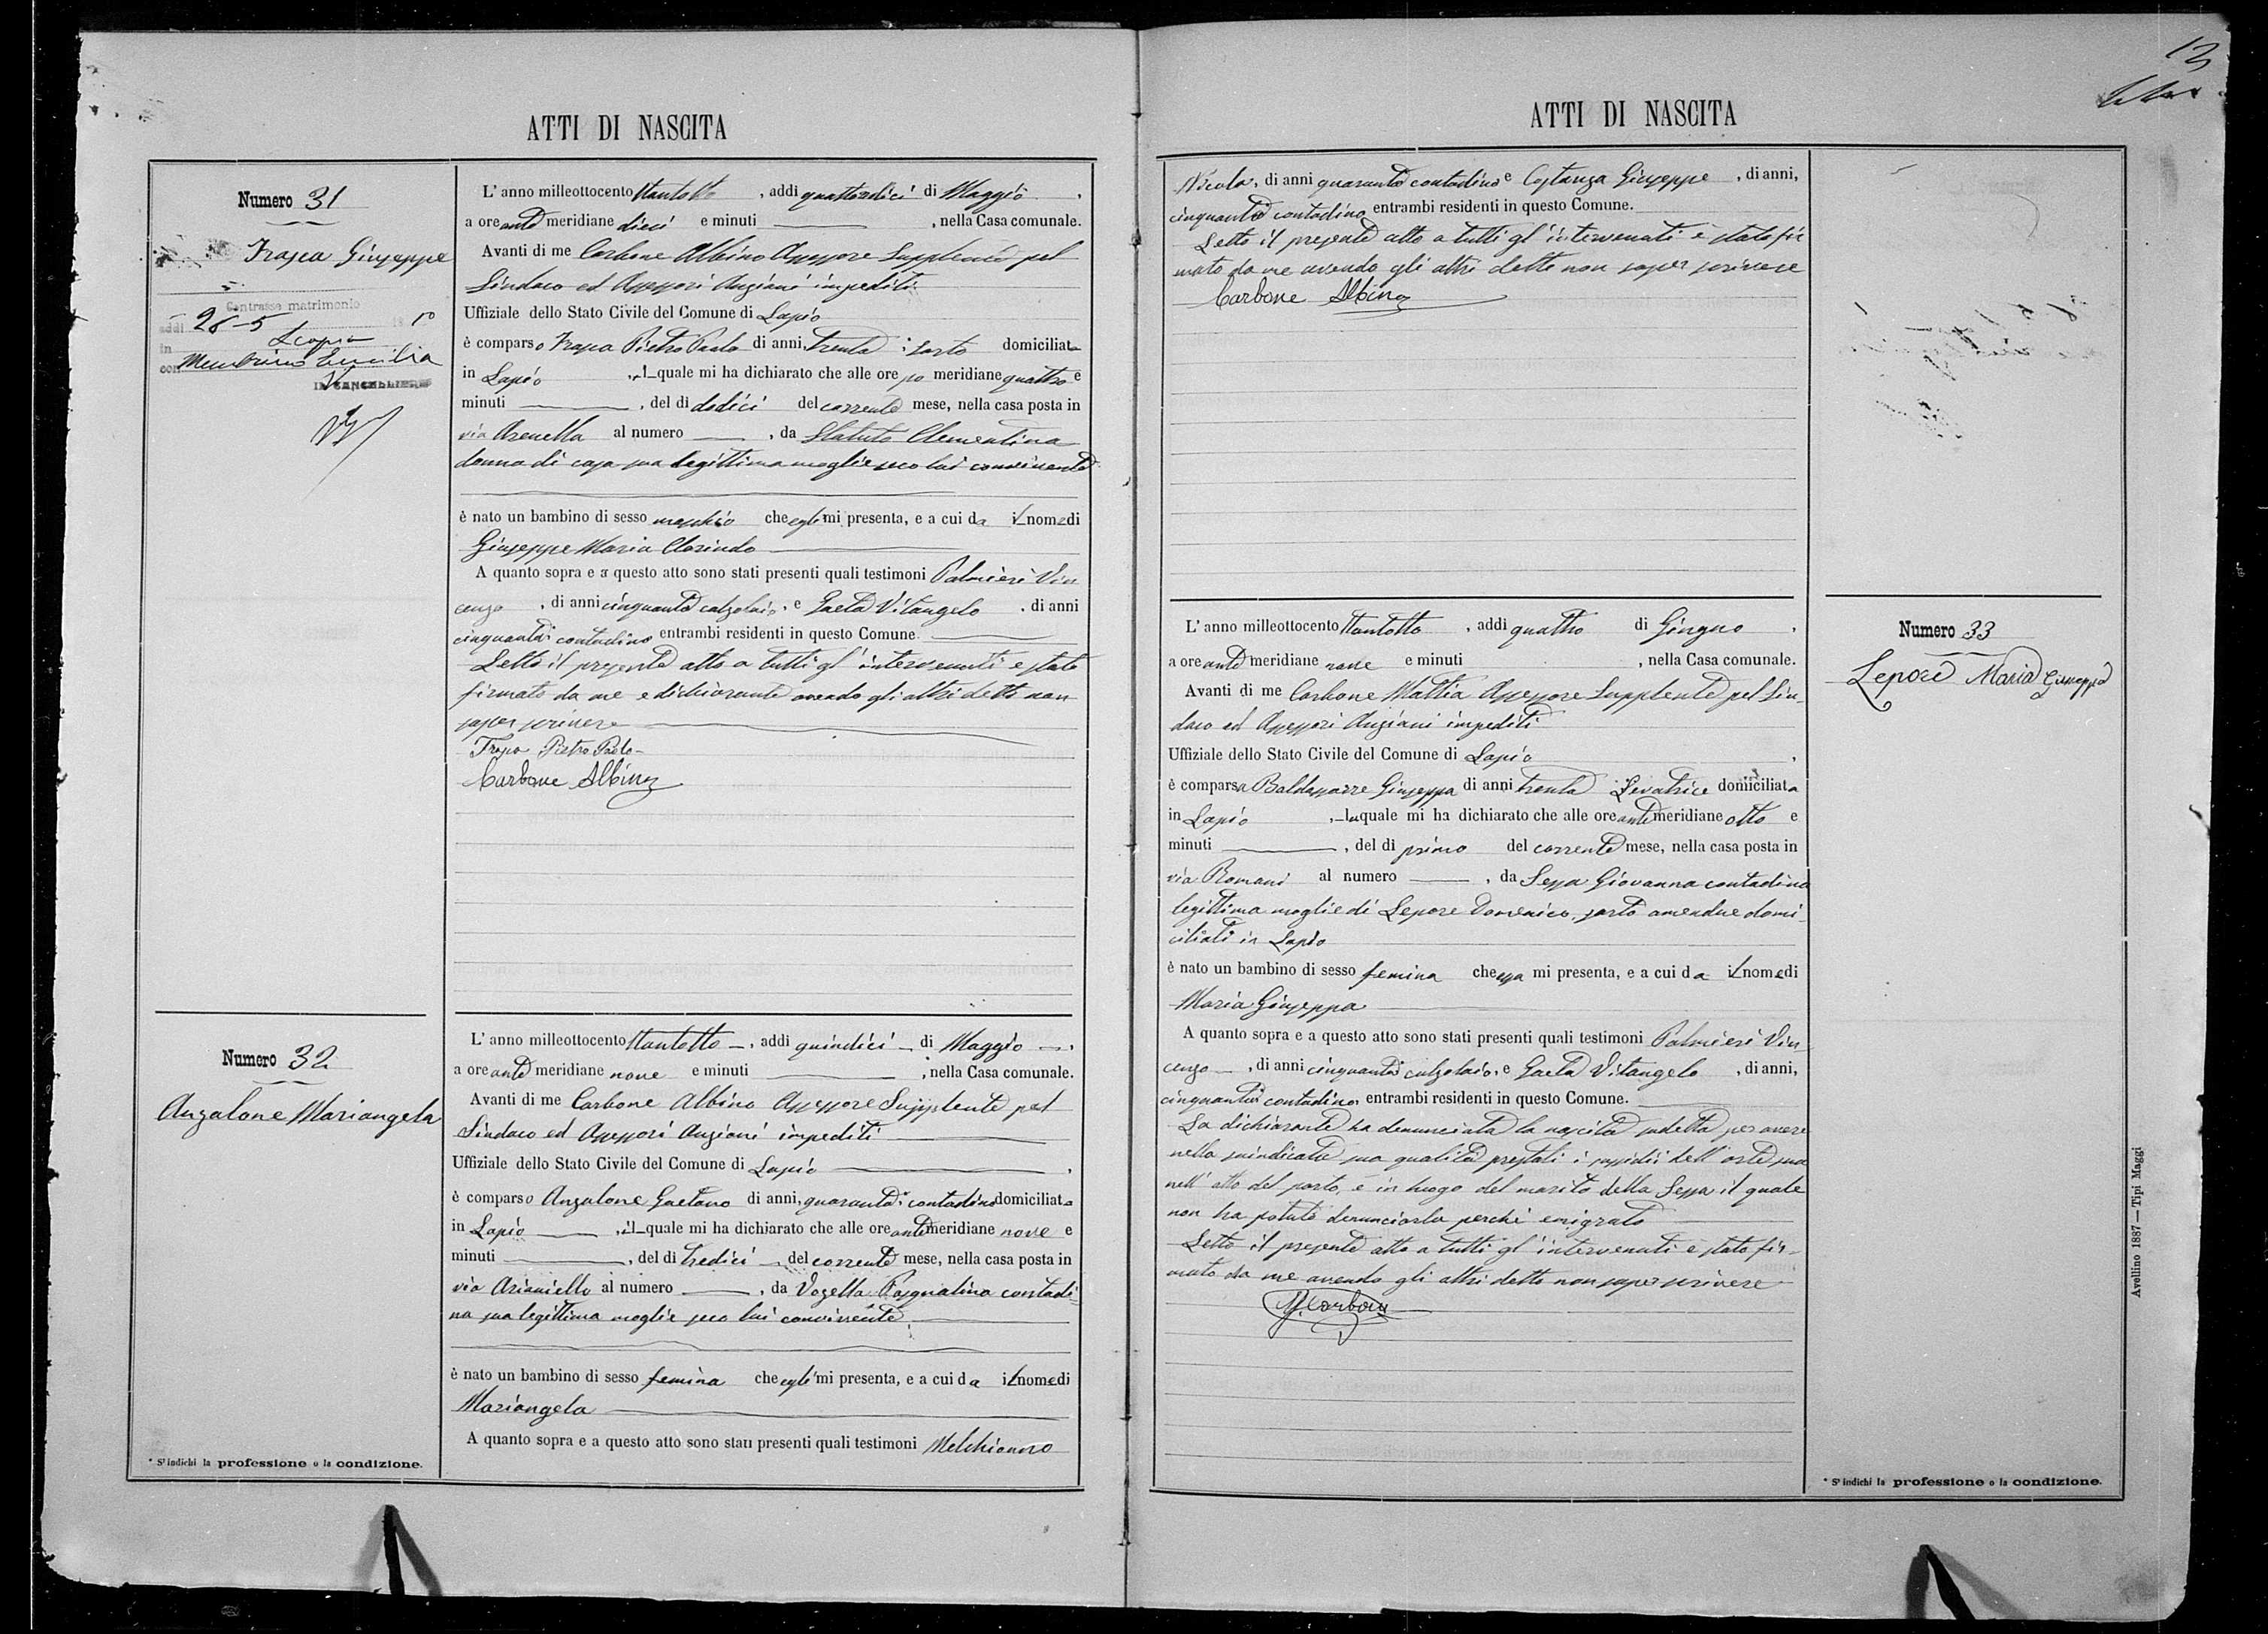 ATTI DI NASCITA
Numero 31
Trapa Giuseppe
Contrasse matrimonio
addì 28-5
in
con
L'anno milleottocentottantotto, addì quattordici di Maggio,
a ore ante meridiane dieci e minuti, nella Casa comunale.
Avanti di me Carbone Albino Assessore Supplente pel
Sindaco ed Assessori Anziani impediti
Uffiziale dello Stato Civile del Comune di Lapio
è comparso Trapa Pietro Paolo di anni, trenta, sarto domiciliato
in Lapio, il quale mi ha dichiarato che alle ore po meridiane quattro e
minuti, del dì dodici del corrente mese, nella casa posta in
via Arenella al numero, da Statuto Clementina
donna di casa sua legittima moglie seco lui convivente
è nato un bambino di sesso maschio che egli mi presenta, e a cui da il nome di
Giuseppe Maria Clorindo
A quanto sopra e a questo atto sono stati presenti quali testimoni Palmieri Vin
cenzo, di anni cinquanta calzolaio, e Gaeta Vitangelo, di anni
cinquanta contadino entrambi residenti in questo Comune.
Letto il presente atto a tutti gl'intervenuti è stato
firmato da me e dichiarante avendo gli altri detto non
saper scrivere
Trapa Pietro Paolo
Carbone Albino
Numero 32
Anzalone Mariangela
L'anno milleottocentottantotto, addì quindici di Maggio,
a ore ante meridiane nove e minuti, nella Casa comunale.
Avanti di me Carbone Albino Assessore Supplente pel
Sindaco ed Assessori Anziani impediti
Uffiziale dello Stato Civile del Comune di Lapio,
è comparso Anzalone Gaetano di anni, quaranta contadino domiciliato
in Lapio, il quale mi ha dichiarato che alle ore ante meridiane nove e
minuti, del dì tredici del corrente mese, nella casa posta in
via Arianiello al numero, da Vozella Pasqualina contadi
na sua legittima moglie seco lui convivente
è nato un bambino di sesso femina che egli mi presenta, e a cui da il nome di
Mariangela
A quanto sopra e a questo atto sono stati presenti quali testimoni Melchionno
* S'indichi la professione o la condizione.
13
ATTI DI NASCITA
Nicola, di anni quaranta contadino e Costanza Giuseppe, di anni,
cinquanta contadino entrambi residenti in questo Comune.
Letto il presente atto a tutti gl'intervenuti è stato fir
mato da me avendo gli altri detto non saper scrivere
Carbone Albino
L'anno milleottocentottantotto, addì quattro di Giugno,
a ore ante meridiane nove e minuti, nella Casa comunale.
Avanti di me Carbone Mattia Assessore Supplente pel Sin
daco ed Assessori Anziani impediti
Uffiziale dello Stato Civile del Comune di Lapio,
è comparsa Baldassarre Giuseppa di anni trenta Levatrice domiciliata
in Lapio, la quale mi ha dichiarato che alle ore ante meridiane otto e
minuti, del dì primo del corrente mese, nella casa posta in
via Romani al numero, da Sessa Giovanna contadina
legittima moglie di Lepore Domenico, sarto amendue domi
ciliati in Lapio
è nato un bambino di sesso femina che essa mi presenta, e a cui da il nome di
Maria Giuseppa
A quanto sopra e a questo atto sono stati presenti quali testimoni Palmieri Vin
cenzo, di anni cinquanta calzolaio, e Gaeta Vitangelo, di anni,
cinquanta contadino, entrambi residenti in questo Comune.
La dichiarante ha denunciata la nascita sudetta per avere
nella suindicata sua qualità prestati i sussidii dell'arte sua
nell'atto del parto, e in luogo del marito della Sessa il quale
non ha potuto denunciarla perché emigrato
Letto il presente atto a tutti gl'intervenuti è stato fir
mato da me avendo gli altri detto non saper scrivere
M. Carbone
Numero 33
Lepore Maria Giuseppa
* S'indichi la professione o la condizione.
Avellino 1887 — Tipi Maggi